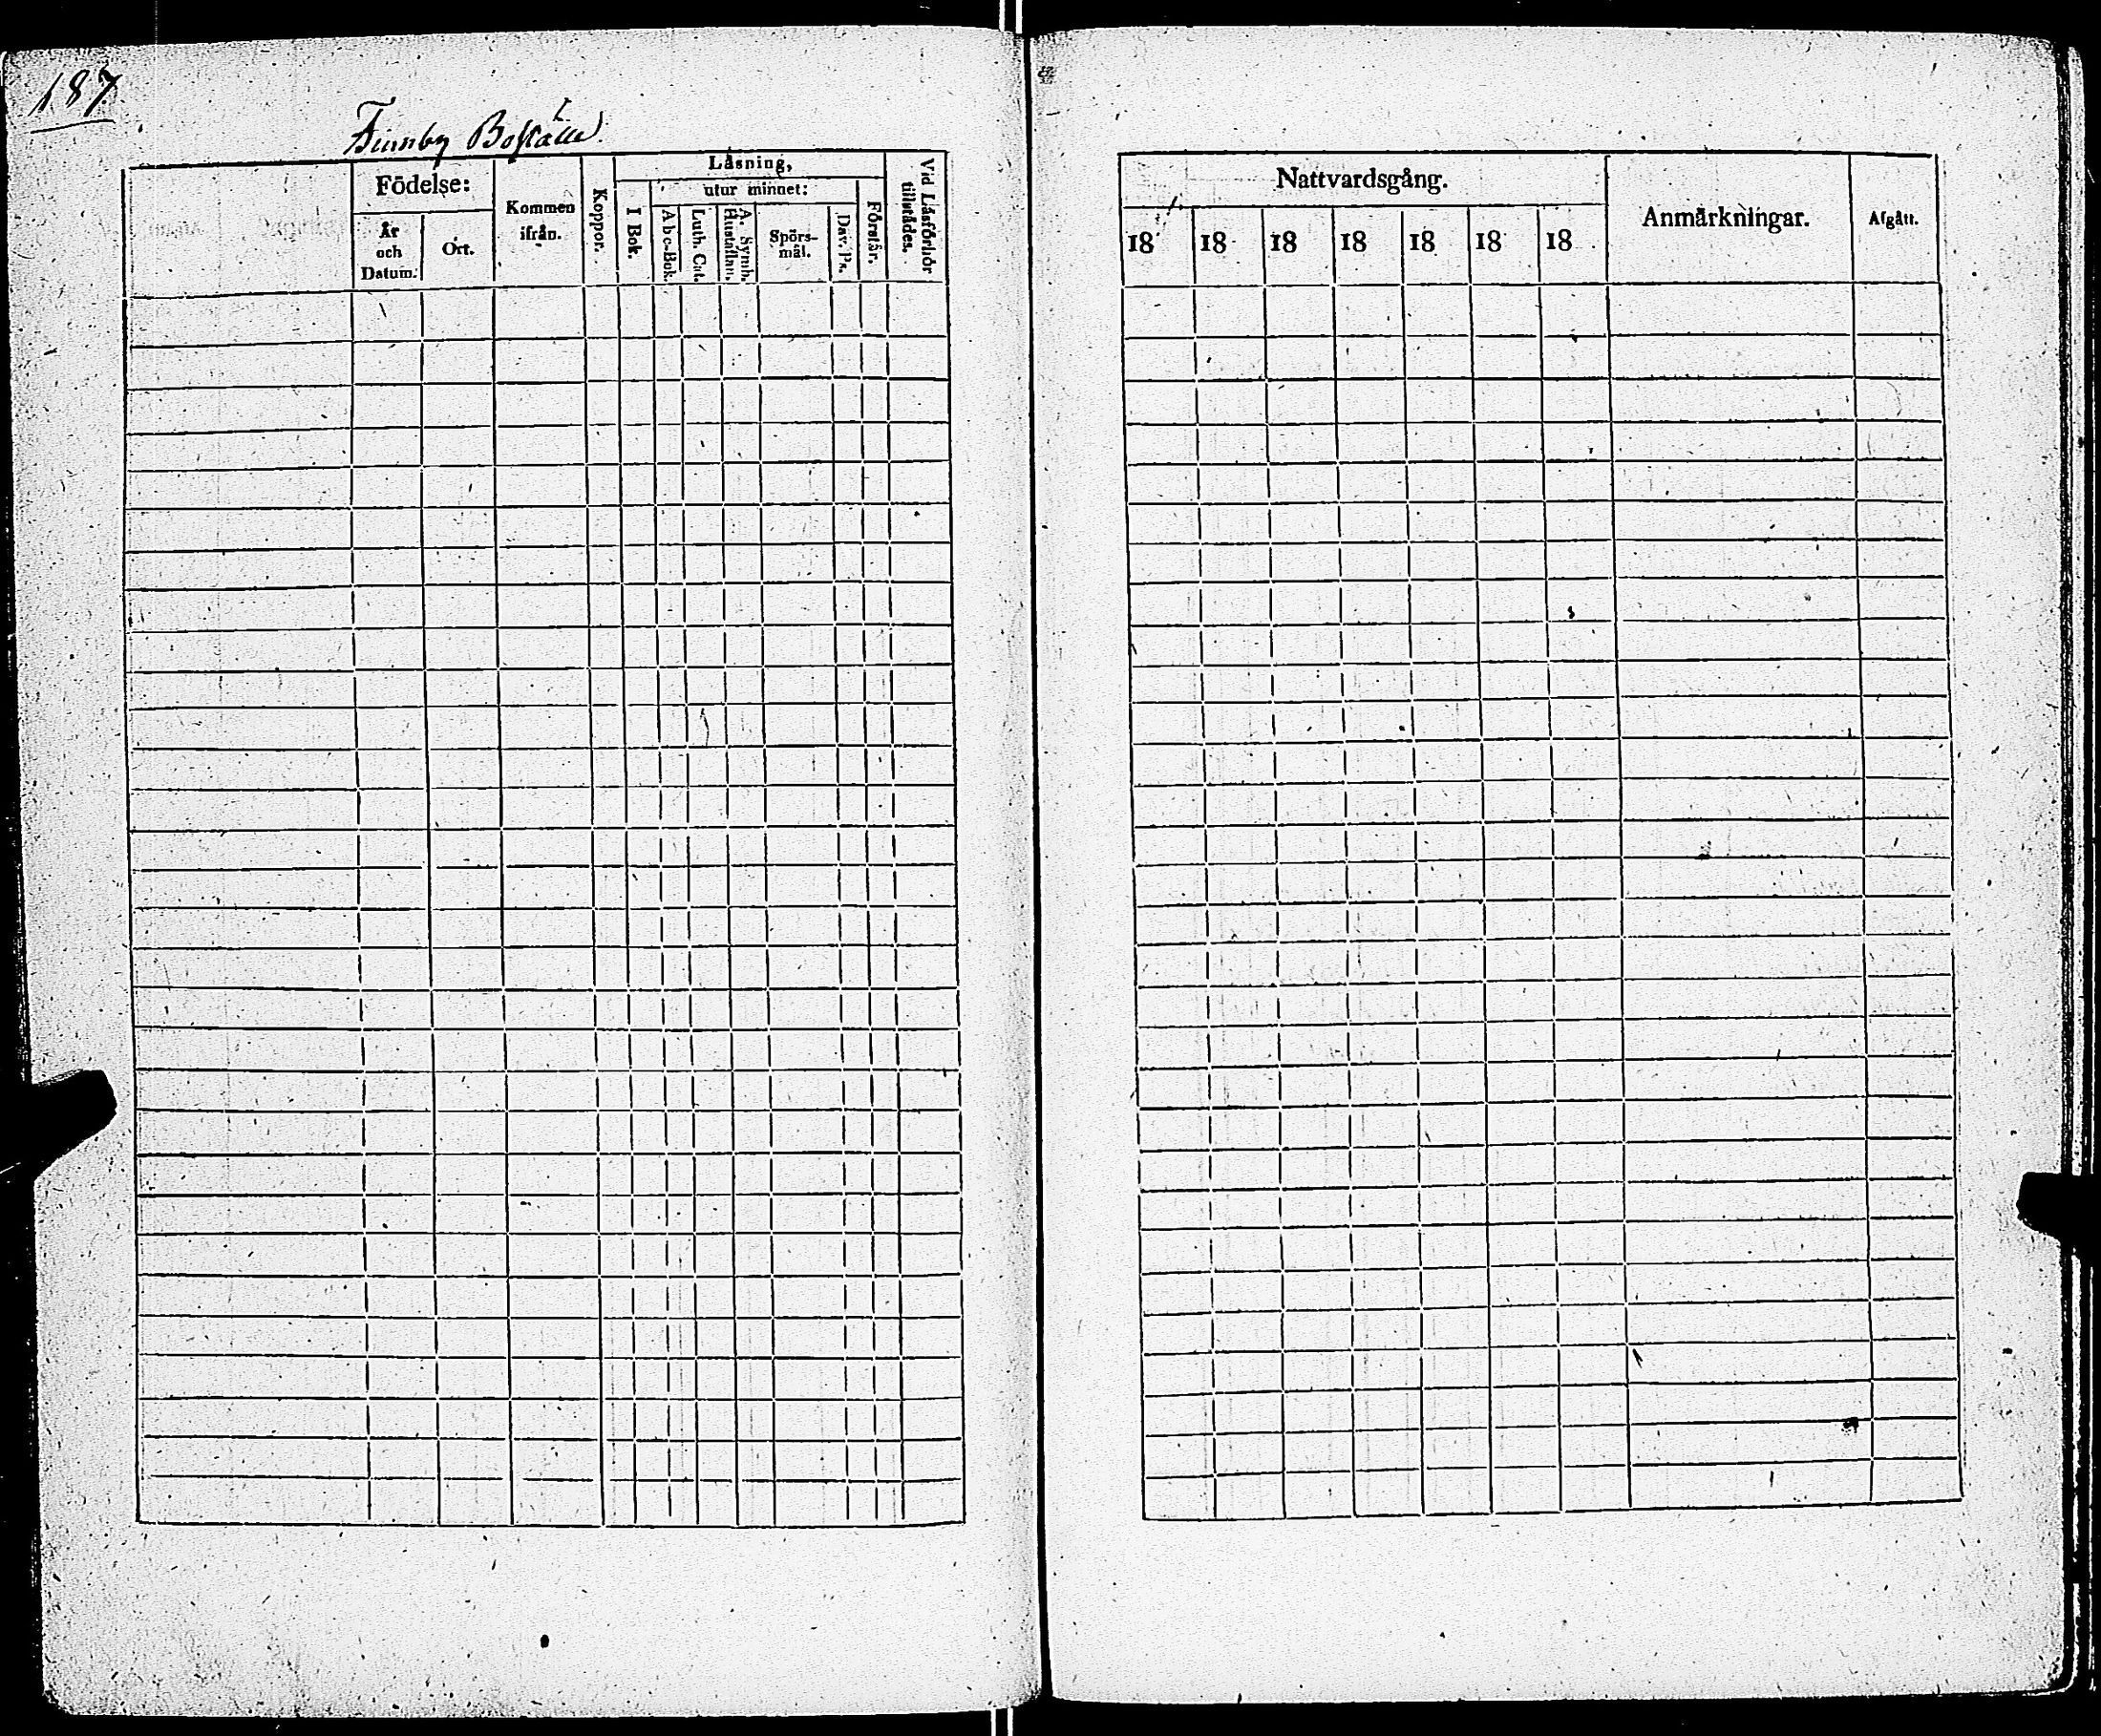 187.
Finnby Boställe
Födelse:
År
och
Datum.
Ort.
Kommen
ifrån.
Koppor.
Läsning,
I Bok.
utur minnet:
Abc-Bok.
Luth. Cat.
A. Symb.
Hustaflan.
Spörs-
mål.
Dav. Ps.
Förstår.
Vid Läsförhör
tillstädes.
Nattvardsgång.
18 18 18 18 18 18 18
Anmärkningar.
Afgått.